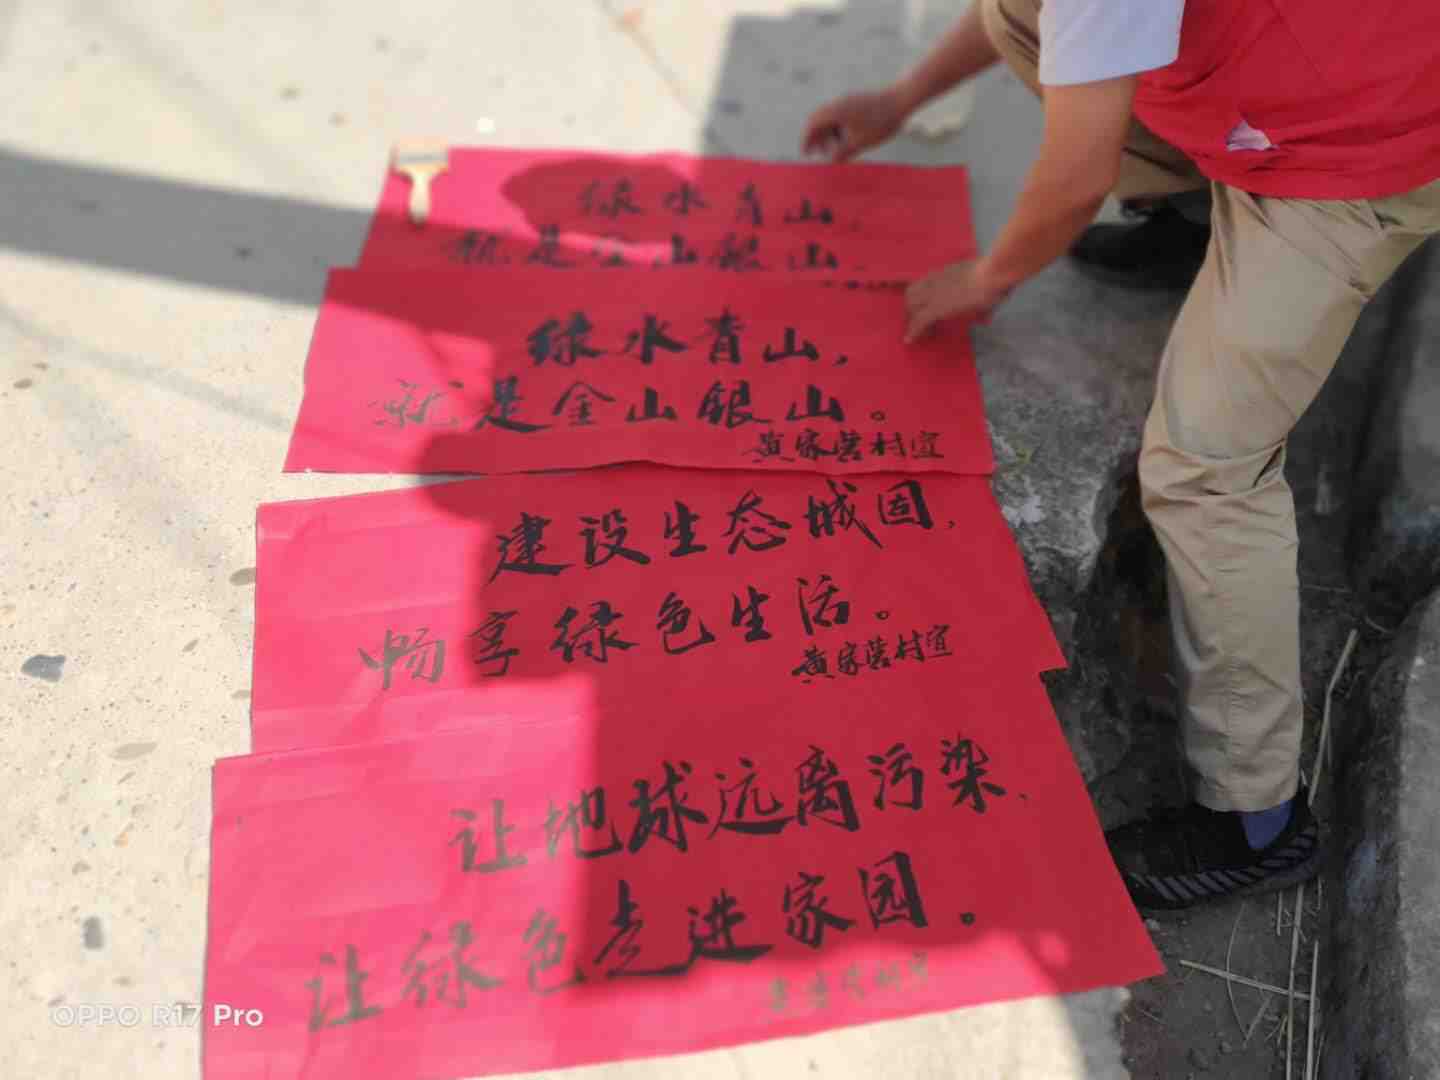 绿水青山，
就是金山银山。
绿水青山，
就是金山银山。
黄家营村宣
建设生态城固，
畅享绿色生活。
黄家营村宣
让地球远离污染，
让绿色走进家园。
黄家营村宣
OPPO R17 Pro